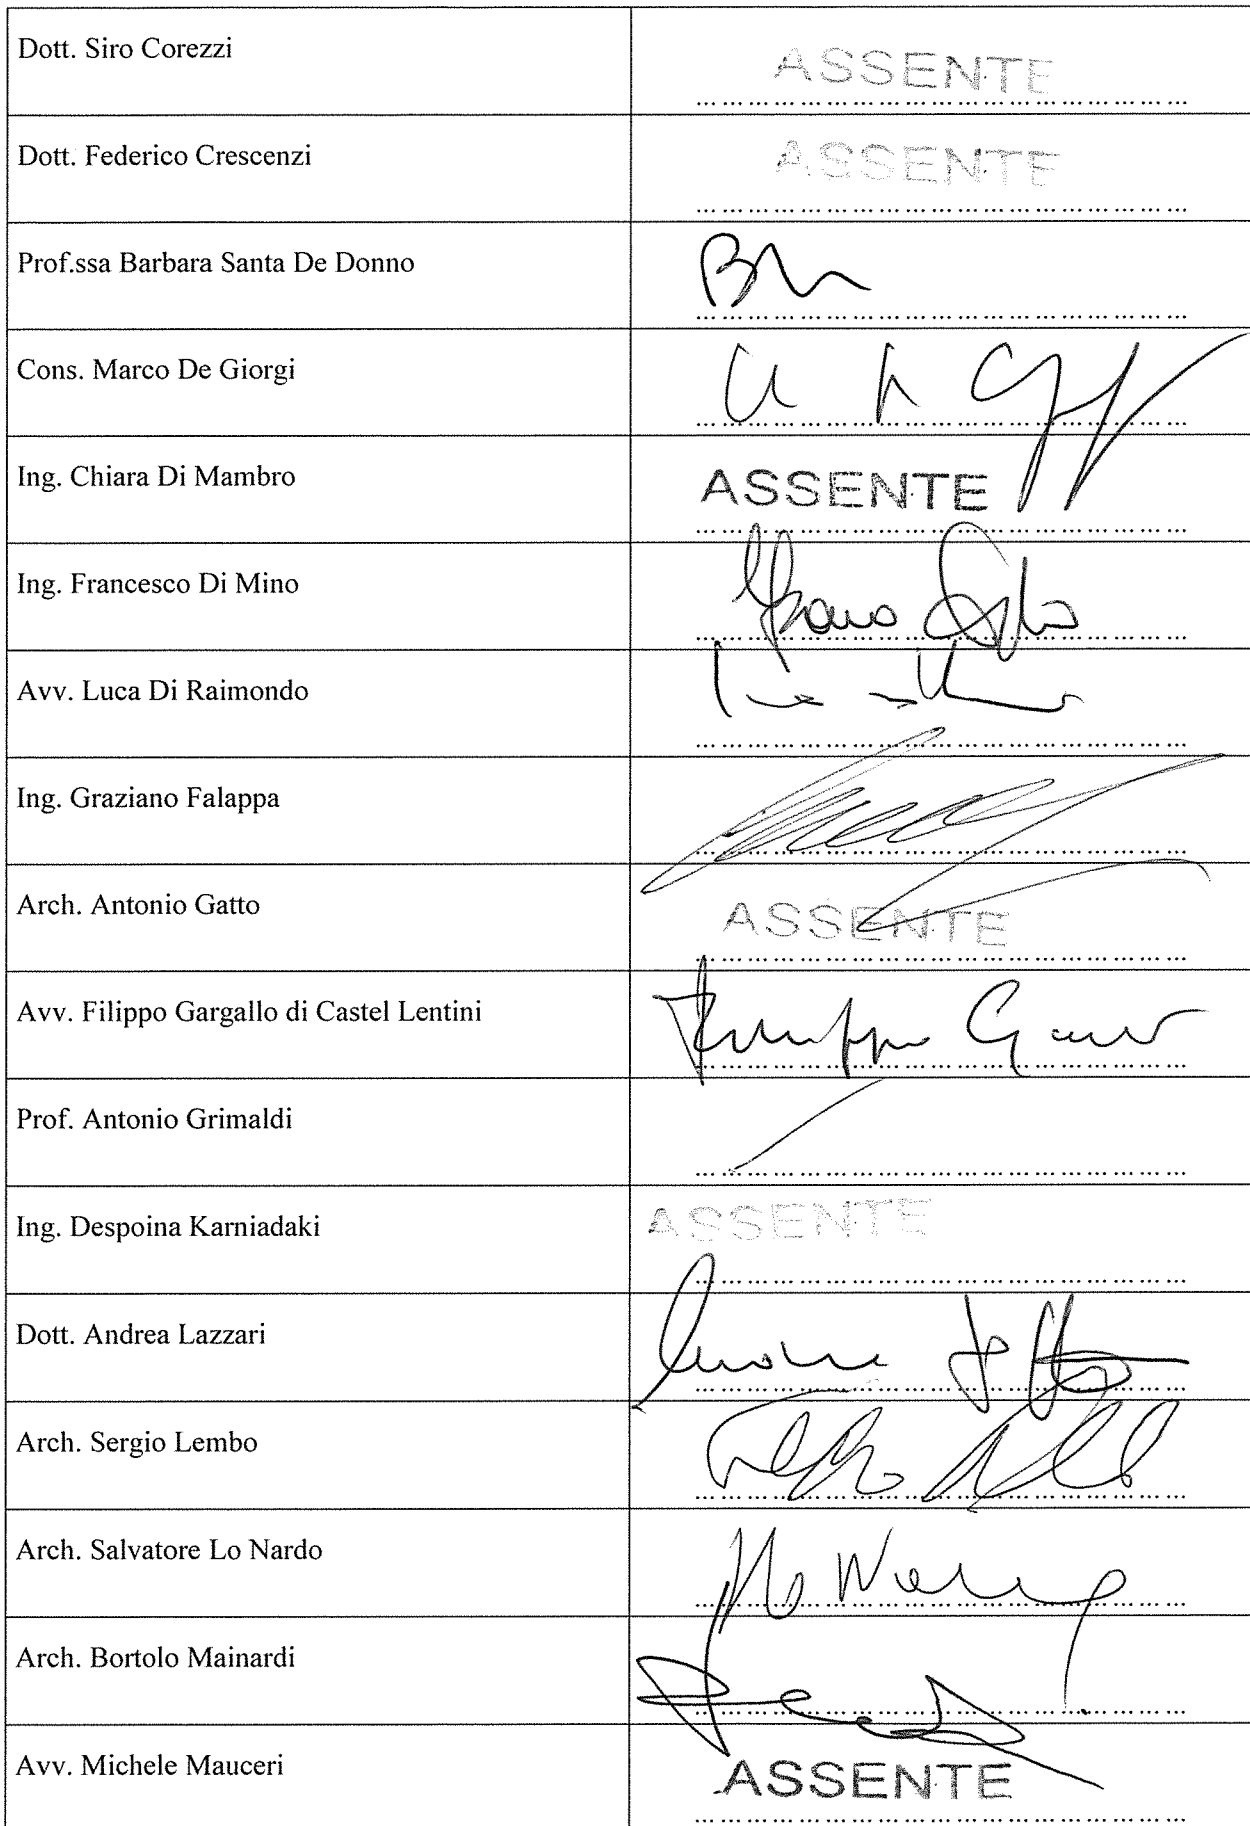 Dott. Siro Corezzi ASSENTE
Dott. Federico Crescenzi ASSENTE
Prof.ssa Barbara Santa De Donno
Cons. Marco De Giorgi
Ing. Chiara Di Mambro ASSENTE
Ing. Francesco Di Mino
Avv. Luca Di Raimondo
Ing. Graziano Falappa
Arch. Antonio Gatto ASSENTE
Avv. Filippo Gargallo di Castel Lentini
Prof. Antonio Grimaldi
Ing. Despoina Karniadaki ASSENTE
Dott. Andrea Lazzari
Arch. Sergio Lembo
Arch. Salvatore Lo Nardo
Arch. Bortolo Mainardi
Avv. Michele Mauceri ASSENTE